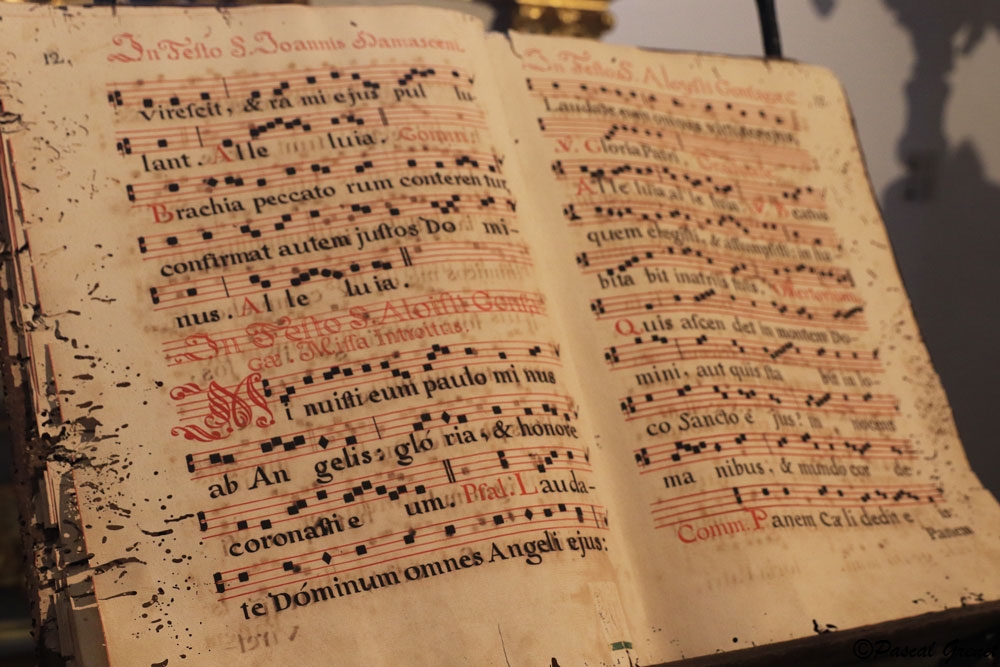 12.
In Festo S. Joannis Damasceni.
Virescit, & ra mi ejus pul lu-
lant. Alle luia. Comm:
Brachia peccato rum conteren tur,
confirmat autem justos Do mi-
nus. Al le luia.
In Festo S. Aloisii Gonza
Missa Introitus:
Mi nuisti eum paulo mi nus
ab An gelis: gló ria, & honore
coronasti e um. Psal. Lauda-
te Dóminum omnes Angeli ejus:
In Festo S. Aloysii Gonzagæ
Laudate eum omnes virtutes ejus.
V. Gloria Patri.
Alle luia al le luia. V. Beatus
quem elegisti, & assumpsisti: in ha-
bita bit in atriis tuis.
Quis ascen det in montem Do-
mini, aut quis sta bit in lo-
co Sancto e jus? in nocens
ma nibus, & mundo cor de.
Comm: Panem Cæli dedit e is:
Panem
©Pascal